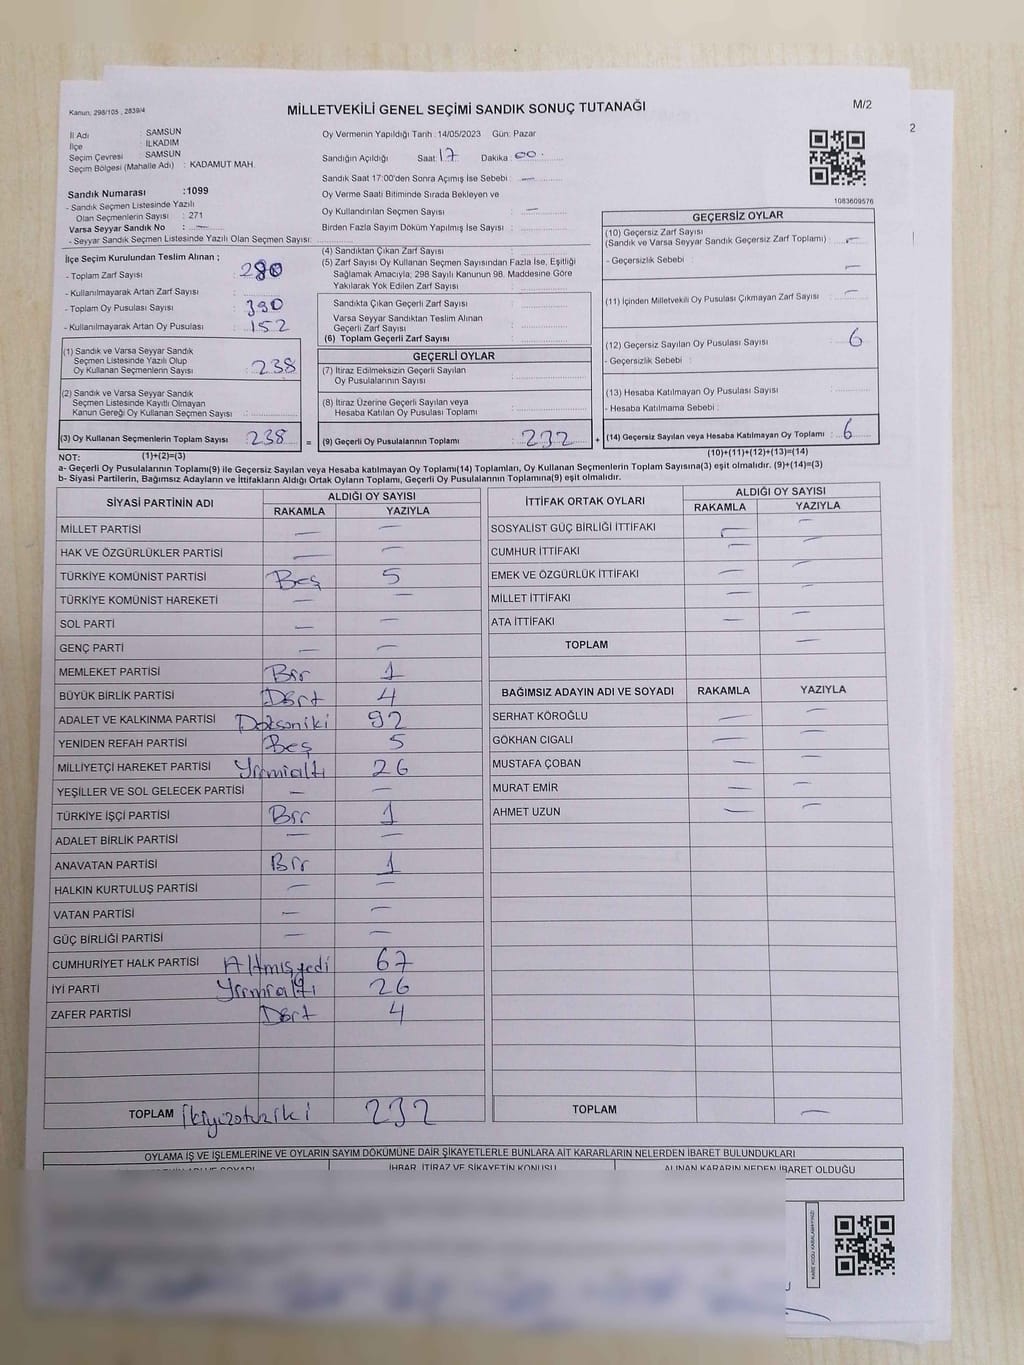 Kanun, 298/105 , 2839/4
MİLLETVEKİLİ GENEL SEÇİMİ SANDIK SONUÇ TUTANAĞI
M/2
2
İl Adı : SAMSUN
İlçe : İLKADIM
Seçim Çevresi : SAMSUN
Seçim Bölgesi (Mahalle Adı) : KADAMUT MAH.
Sandık Numarası :1099
- Sandık Seçmen Listesinde Yazılı
Olan Seçmenlerin Sayısı : 271
Varsa Seyyar Sandık No : —
- Seyyar Sandık Seçmen Listesinde Yazılı Olan Seçmen Sayısı:
Oy Vermenin Yapıldığı Tarih : 14/05/2023 Gün: Pazar
Sandığın Açıldığı Saat: 17 Dakika : 00
Sandık Saat 17:00'den Sonra Açımış İse Sebebi : —
Oy Verme Saati Bitiminde Sırada Bekleyen ve
Oy Kullandırılan Seçmen Sayısı : —
Birden Fazla Sayım Döküm Yapılmış İse Sayısı :
1083609576
İlçe Seçim Kurulundan Teslim Alınan ;
- Toplam Zarf Sayısı : 280
- Kullanılmayarak Artan Zarf Sayısı :
- Toplam Oy Pusulası Sayısı : 390
- Kullanılmayarak Artan Oy Pusulası : 152
(1) Sandık ve Varsa Seyyar Sandık
Seçmen Listesinde Yazılı Olup
Oy Kullanan Seçmenlerin Sayısı : 238
(2) Sandık ve Varsa Seyyar Sandık
Seçmen Listesinde Kayıtlı Olmayan
Kanun Gereği Oy Kullanan Seçmen Sayısı :
(3) Oy Kullanan Seçmenlerin Toplam Sayısı : 238 =
(4) Sandıktan Çıkan Zarf Sayısı :
(5) Zarf Sayısı Oy Kullanan Seçmen Sayısından Fazla İse, Eşitliği
Sağlamak Amacıyla; 298 Sayılı Kanunun 98. Maddesine Göre
Yakılarak Yok Edilen Zarf Sayısı :
Sandıkta Çıkan Geçerli Zarf Sayısı :
Varsa Seyyar Sandıktan Teslim Alınan
Geçerli Zarf Sayısı :
(6) Toplam Geçerli Zarf Sayısı :
GEÇERLİ OYLAR
(7) İtiraz Edilmeksizin Geçerli Sayılan
Oy Pusulalarının Sayısı :
(8) İtiraz Üzerine Geçerli Sayılan veya
Hesaba Katılan Oy Pusulası Toplamı :
(9) Geçerli Oy Pusulalarının Toplamı : 232 +
GEÇERSİZ OYLAR
(10) Geçersiz Zarf Sayısı
(Sandık ve Varsa Seyyar Sandık Geçersiz Zarf Toplamı) : —
- Geçersizlik Sebebi : —
(11) İçinden Milletvekili Oy Pusulası Çıkmayan Zarf Sayısı : —
(12) Geçersiz Sayılan Oy Pusulası Sayısı : 6
- Geçersizlik Sebebi :
(13) Hesaba Katılmayan Oy Pusulası Sayısı :
- Hesaba Katılmama Sebebi :
(14) Geçersiz Sayılan veya Hesaba Katılmayan Oy Toplamı : 6
NOT: (1)+(2)=(3)
(10)+(11)+(12)+(13)=(14)
a- Geçerli Oy Pusulalarının Toplamı(9) ile Geçersiz Sayılan veya Hesaba katılmayan Oy Toplamı(14) Toplamları, Oy Kullanan Seçmenlerin Toplam Sayısına(3) eşit olmalıdır. (9)+(14)=(3)
b- Siyasi Partilerin, Bağımsız Adayların ve İttifakların Aldığı Ortak Oyların Toplamı, Geçerli Oy Pusulalarının Toplamına(9) eşit olmalıdır.
SİYASİ PARTİNİN ADI
ALDIĞI OY SAYISI
RAKAMLA YAZIYLA
MİLLET PARTİSİ — —
HAK VE ÖZGÜRLÜKLER PARTİSİ — —
TÜRKİYE KOMÜNİST PARTİSİ Beş 5
TÜRKİYE KOMÜNİST HAREKETİ — —
SOL PARTİ — —
GENÇ PARTİ — —
MEMLEKET PARTİSİ Bir 1
BÜYÜK BİRLİK PARTİSİ Dört 4
ADALET VE KALKINMA PARTİSİ Doksaniki 92
YENİDEN REFAH PARTİSİ Beş 5
MİLLİYETÇİ HAREKET PARTİSİ Yirmialtı 26
YEŞİLLER VE SOL GELECEK PARTİSİ — —
TÜRKİYE İŞÇİ PARTİSİ Bir 1
ADALET BİRLİK PARTİSİ — —
ANAVATAN PARTİSİ Bir 1
HALKIN KURTULUŞ PARTİSİ — —
VATAN PARTİSİ — —
GÜÇ BİRLİĞİ PARTİSİ — —
CUMHURİYET HALK PARTİSİ Altmışyedi 67
İYİ PARTİ Yirmialtı 26
ZAFER PARTİSİ Dört 4
TOPLAM İkiyüzotuziki 232
İTTİFAK ORTAK OYLARI
ALDIĞI OY SAYISI
RAKAMLA YAZIYLA
SOSYALİST GÜÇ BİRLİĞİ İTTİFAKI — —
CUMHUR İTTİFAKI — —
EMEK VE ÖZGÜRLÜK İTTİFAKI — —
MİLLET İTTİFAKI — —
ATA İTTİFAKI — —
TOPLAM —
BAĞIMSIZ ADAYIN ADI VE SOYADI RAKAMLA YAZIYLA
SERHAT KÖROĞLU — —
GÖKHAN CIGALI — —
MUSTAFA ÇOBAN — —
MURAT EMİR — —
AHMET UZUN — —
TOPLAM —
OYLAMA İŞ VE İŞLEMLERİNE VE OYLARIN SAYIM DÖKÜMÜNE DAİR ŞİKAYETLERLE BUNLARA AİT KARARLARIN NELERDEN İBARET BULUNDUKLARI
İHBAR, İTİRAZ VE ŞİKAYETİN KONUSU ALINAN KARARIN NEDEN İBARET OLDUĞU